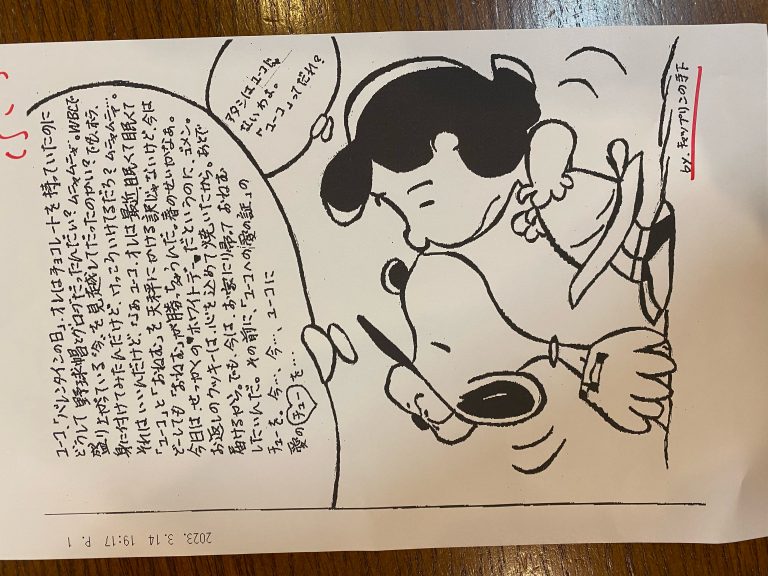 ユーコ「バレンタインの日」、オレはチョコレートを待っていたのに
どうして野球帽とグローブだったんだい？ムニャムニャ。WBCで
盛り上がっている"今"を見越してだったのかい？でも、ホラ、
身に付けてみたんだけど、けっこういけるだろ？ムニャムニャ…。
それはいいんだけど、なぁユーコ、オレは最近眠くて眠くて
「ユーコ」と「おねむ」を天秤にかける訳じゃないけど、今は
どーしても「おねむ」が勝っちゃうんだ。春のせいかなぁ。
今日はせっかくの♥ホワイトデー♥だというのに、ゴメン。
お返しのクッキーは、心を込めて焼いたから。あとで
届けるから。でも、今は、お家に帰って おねむ
したいんだ。その前に、「ユーコへの愛の証」の
チューを。今…、今…、ユーコに
愛の チュー を…
アタシはユーコじゃ
ないわよ。
「ユーコ」ってだれ？
by.チャップリンの手下
2023. 3.14 19:17 P. 1